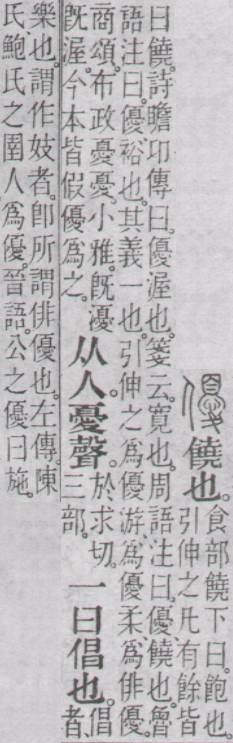 優 饒也。食部饒下曰。飽也。
引伸之凡有餘皆
曰饒。詩瞻卬傳曰。優渥也。箋云。寬也。周語注曰。優、饒也。魯
語注曰。優、裕也。其義一也。引伸之爲優游、爲優柔、爲俳優。
商頌。布政憂憂。小雅。旣瀀
旣渥。今本皆假優爲之。
从人。憂聲。
於求切。
三部。
一曰倡也。
倡
者、
樂也。謂作妓者。卽所謂俳優也。左傳陳
氏鮑氏之圉人爲優。晉語。公之優曰施。